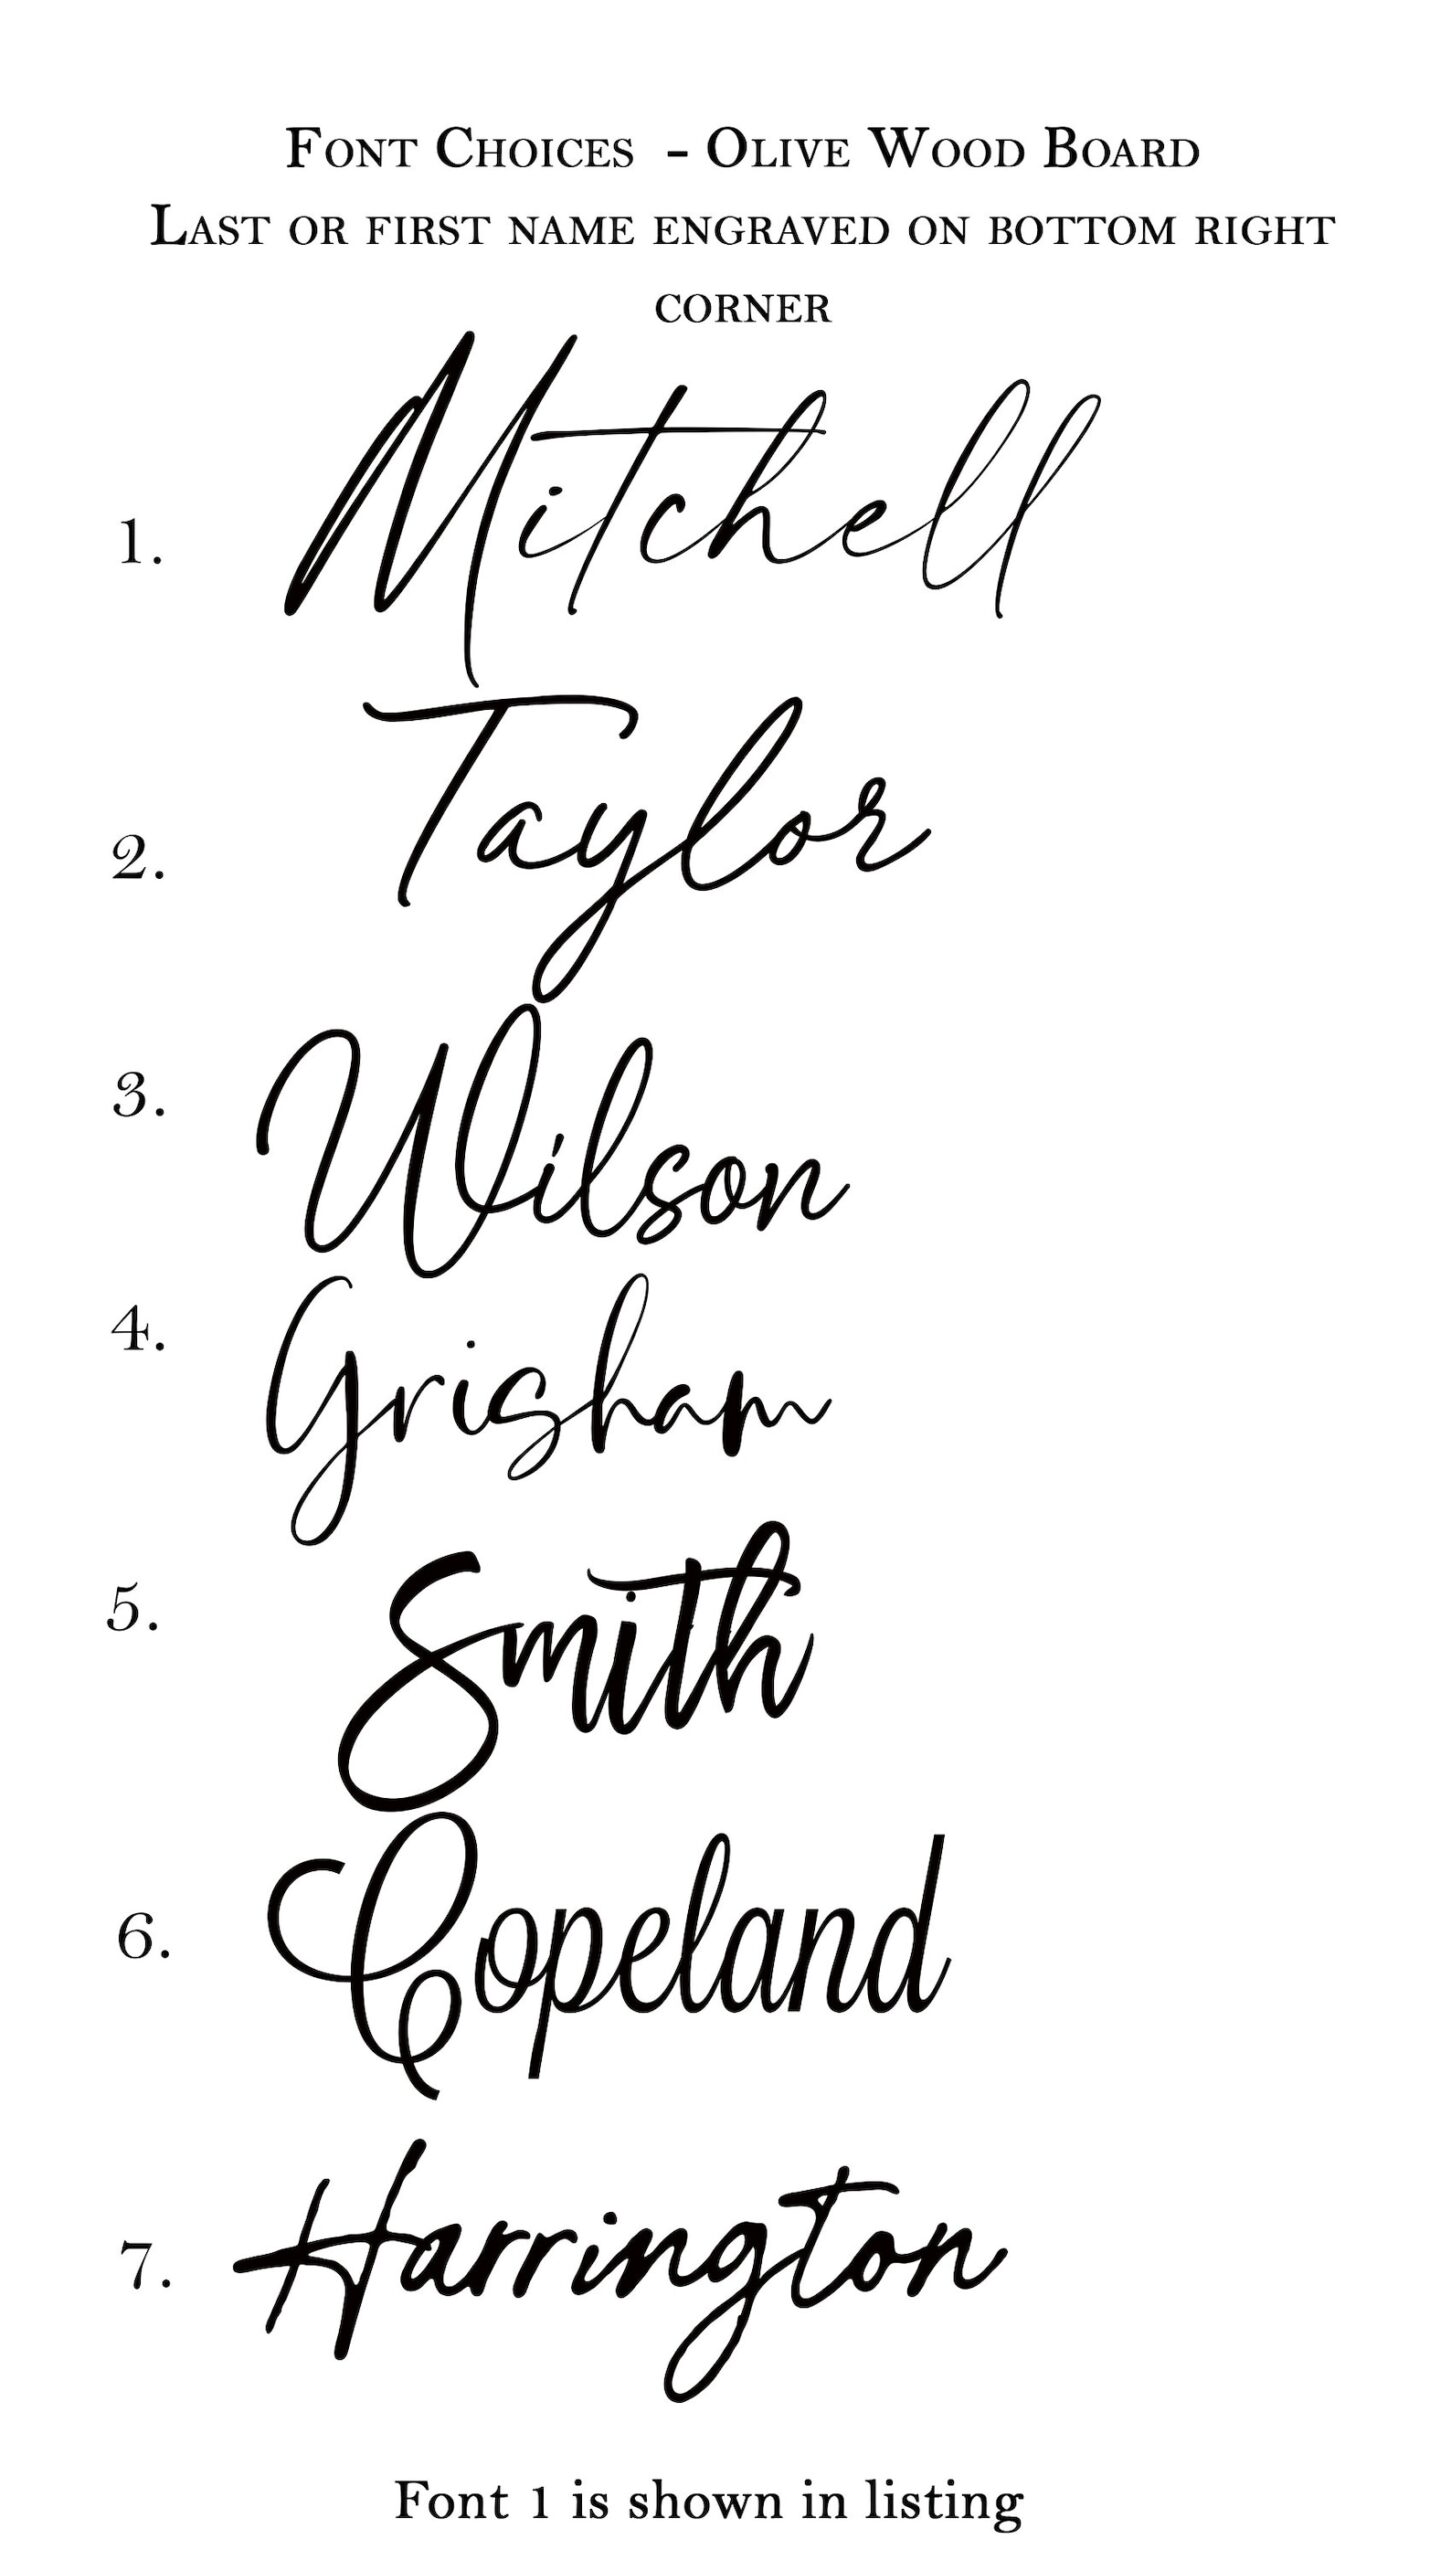 Font Choices - Olive Wood Board
Last or first name engraved on bottom right
corner
1. Mitchell
2. Taylor
3. Wilson
4. Grisham
5. Smith
6. Copeland
7. Harrington
Font 1 is shown in listing